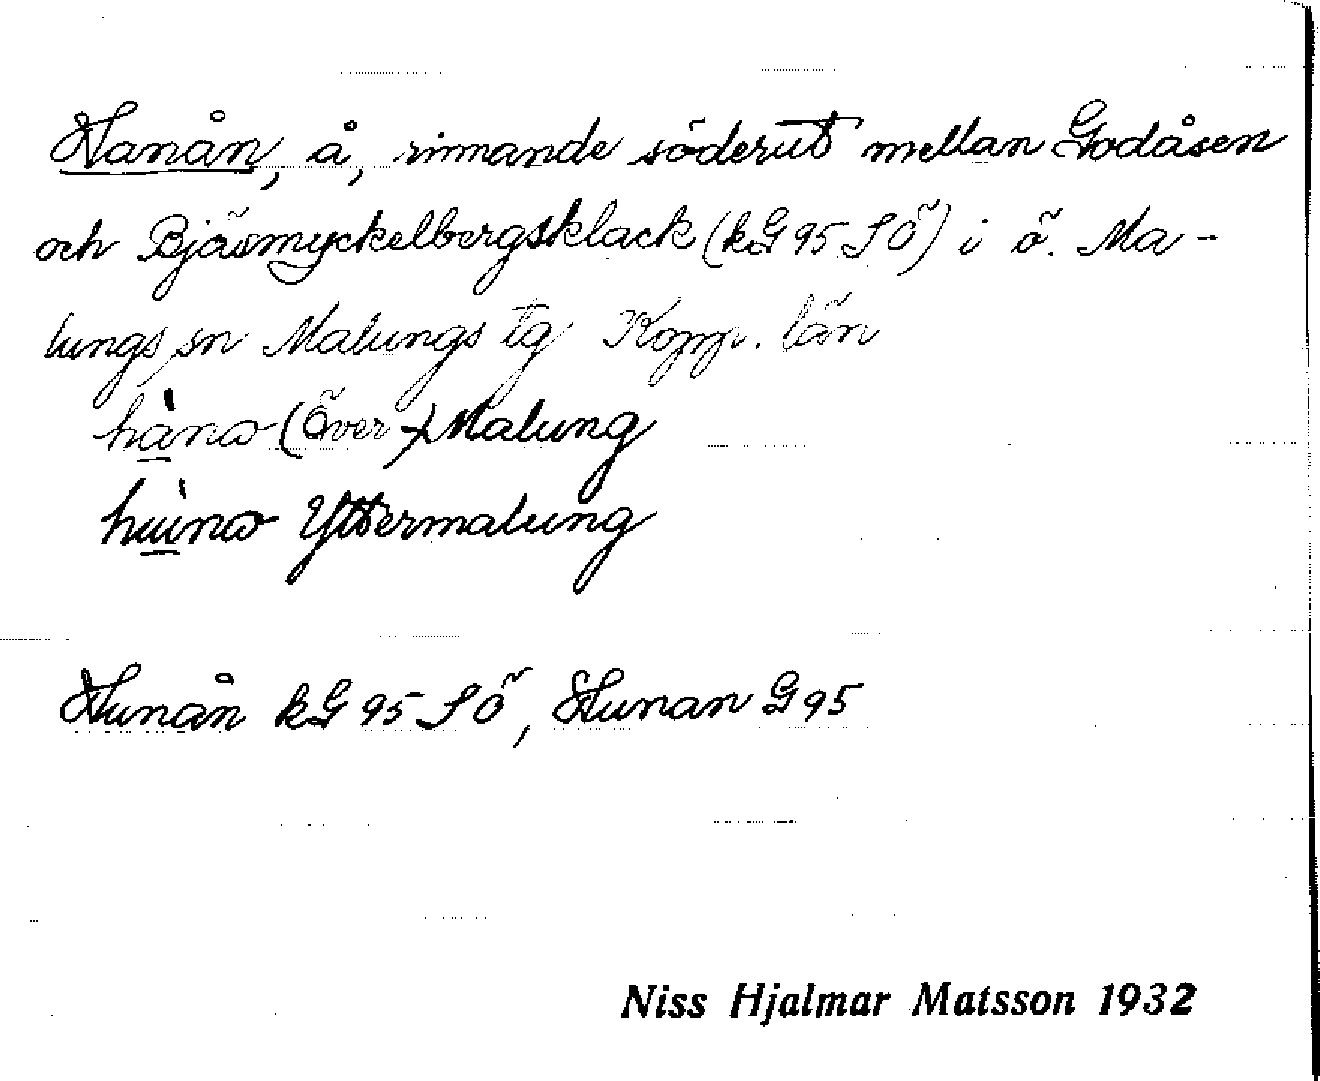 Hanån, å, rinnande söderut mellan Godåsen
och Bjäsmyckelbergsklack (kG 95 SÖ) i ö. Ma-
lungs sn Malungs tg Kopp. län
hànω (Över-)Malung
huìnω Yttermalung
Hunån kG 95 SÖ, Hunan G 95
Niss Hjalmar Matsson 1932